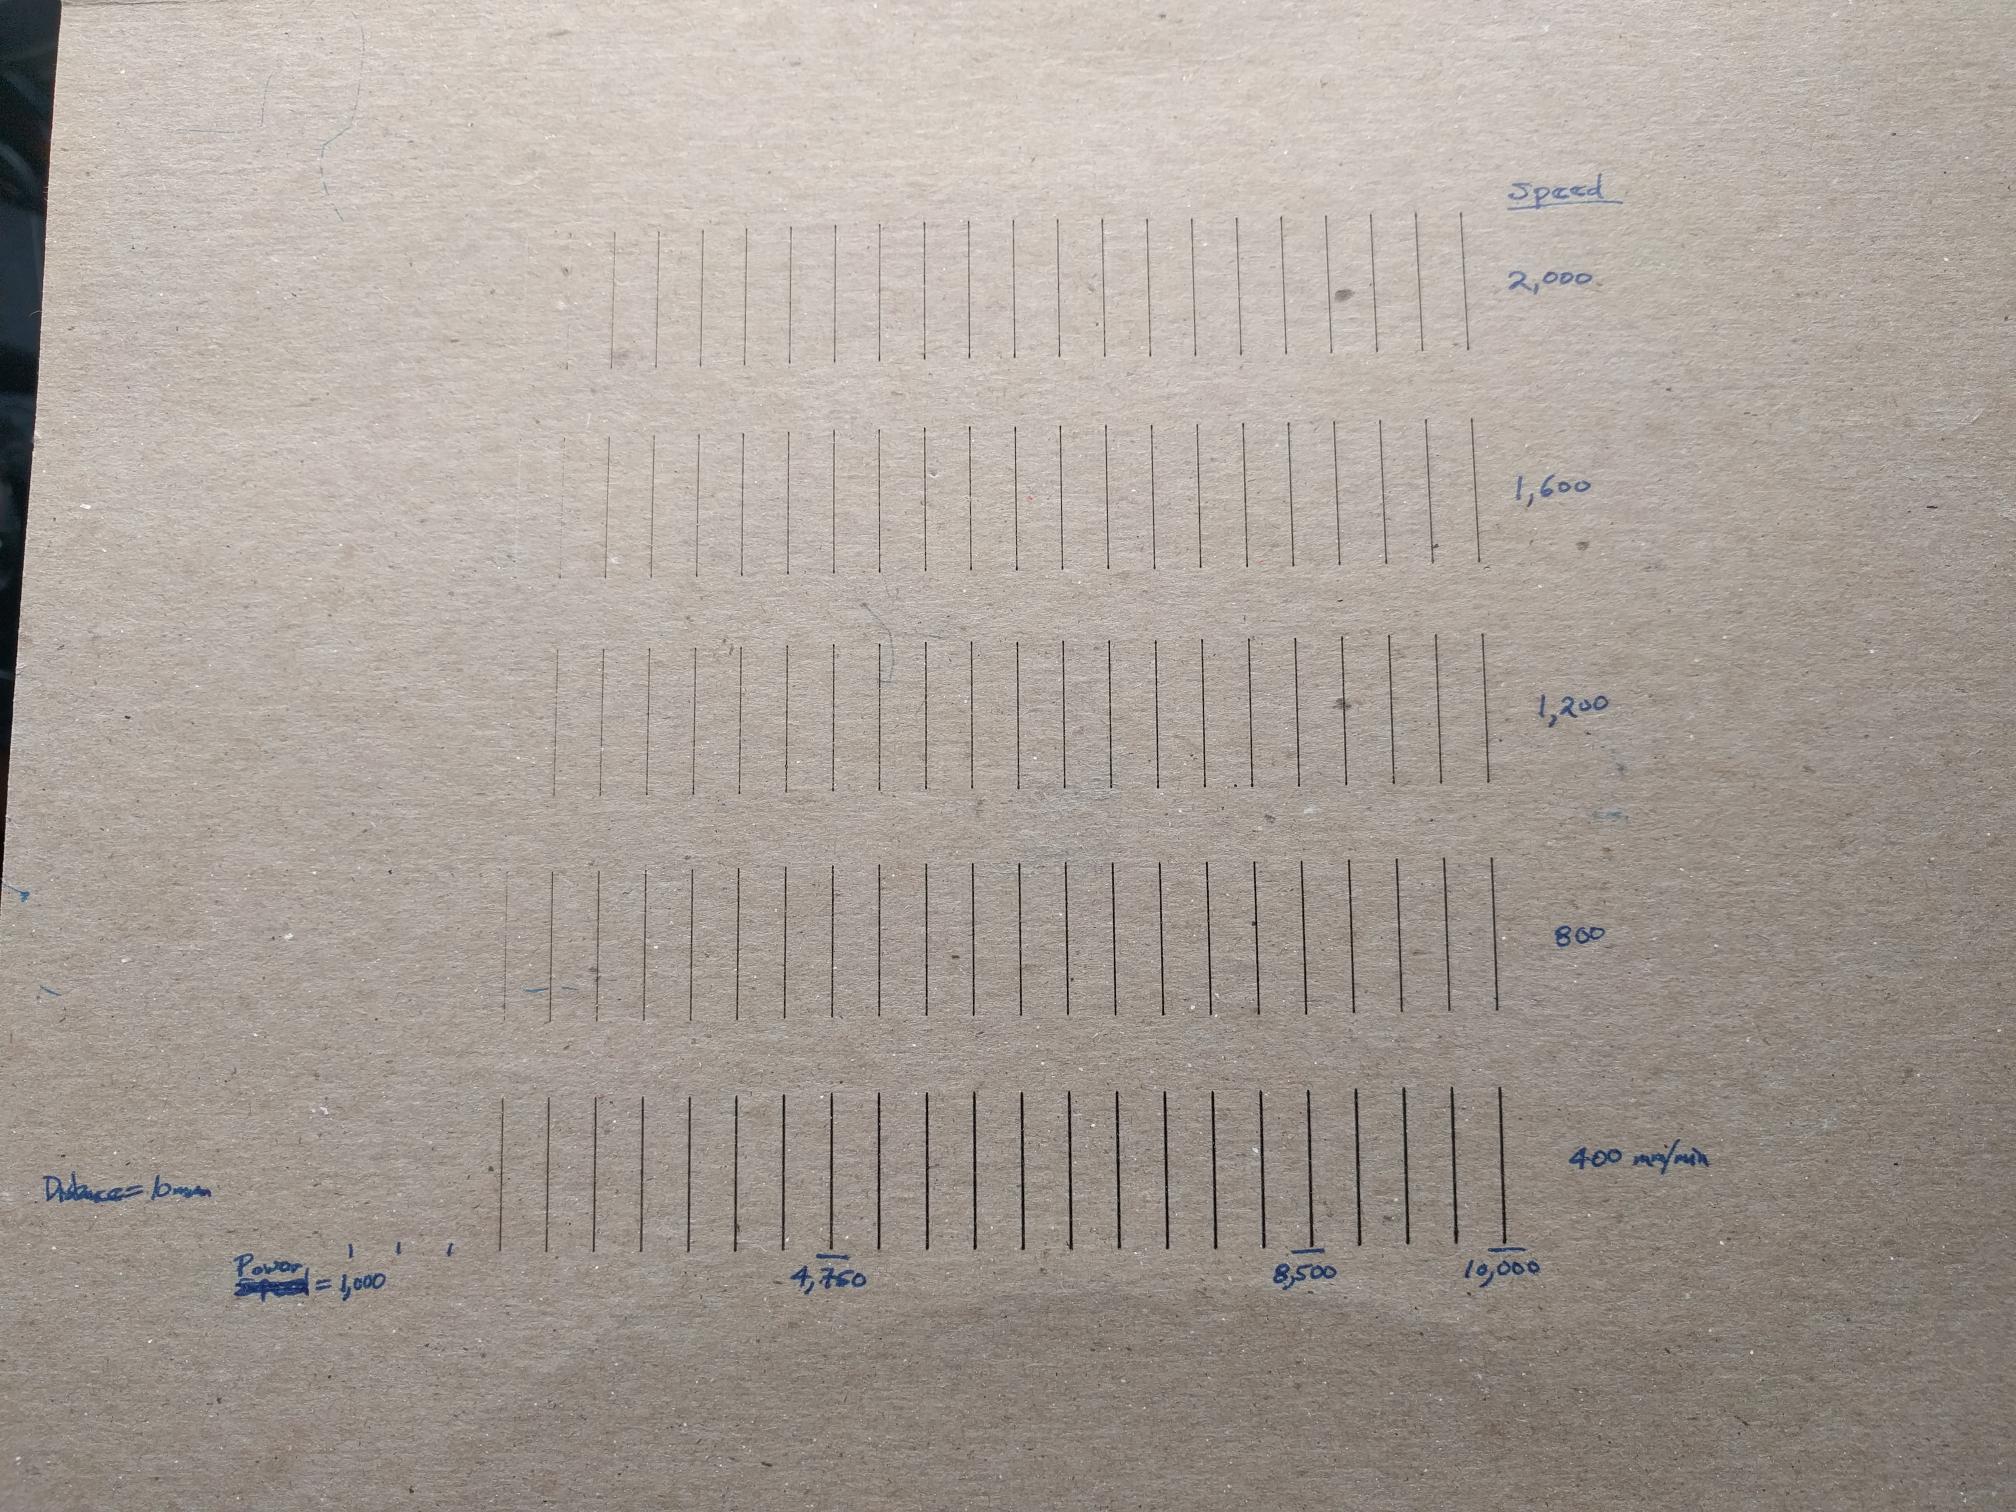 Speed
2,000
1,600
1,200
800
400 mm/min
Distance = 10mm
Power
= 1,000
4,750
8,500
10,000